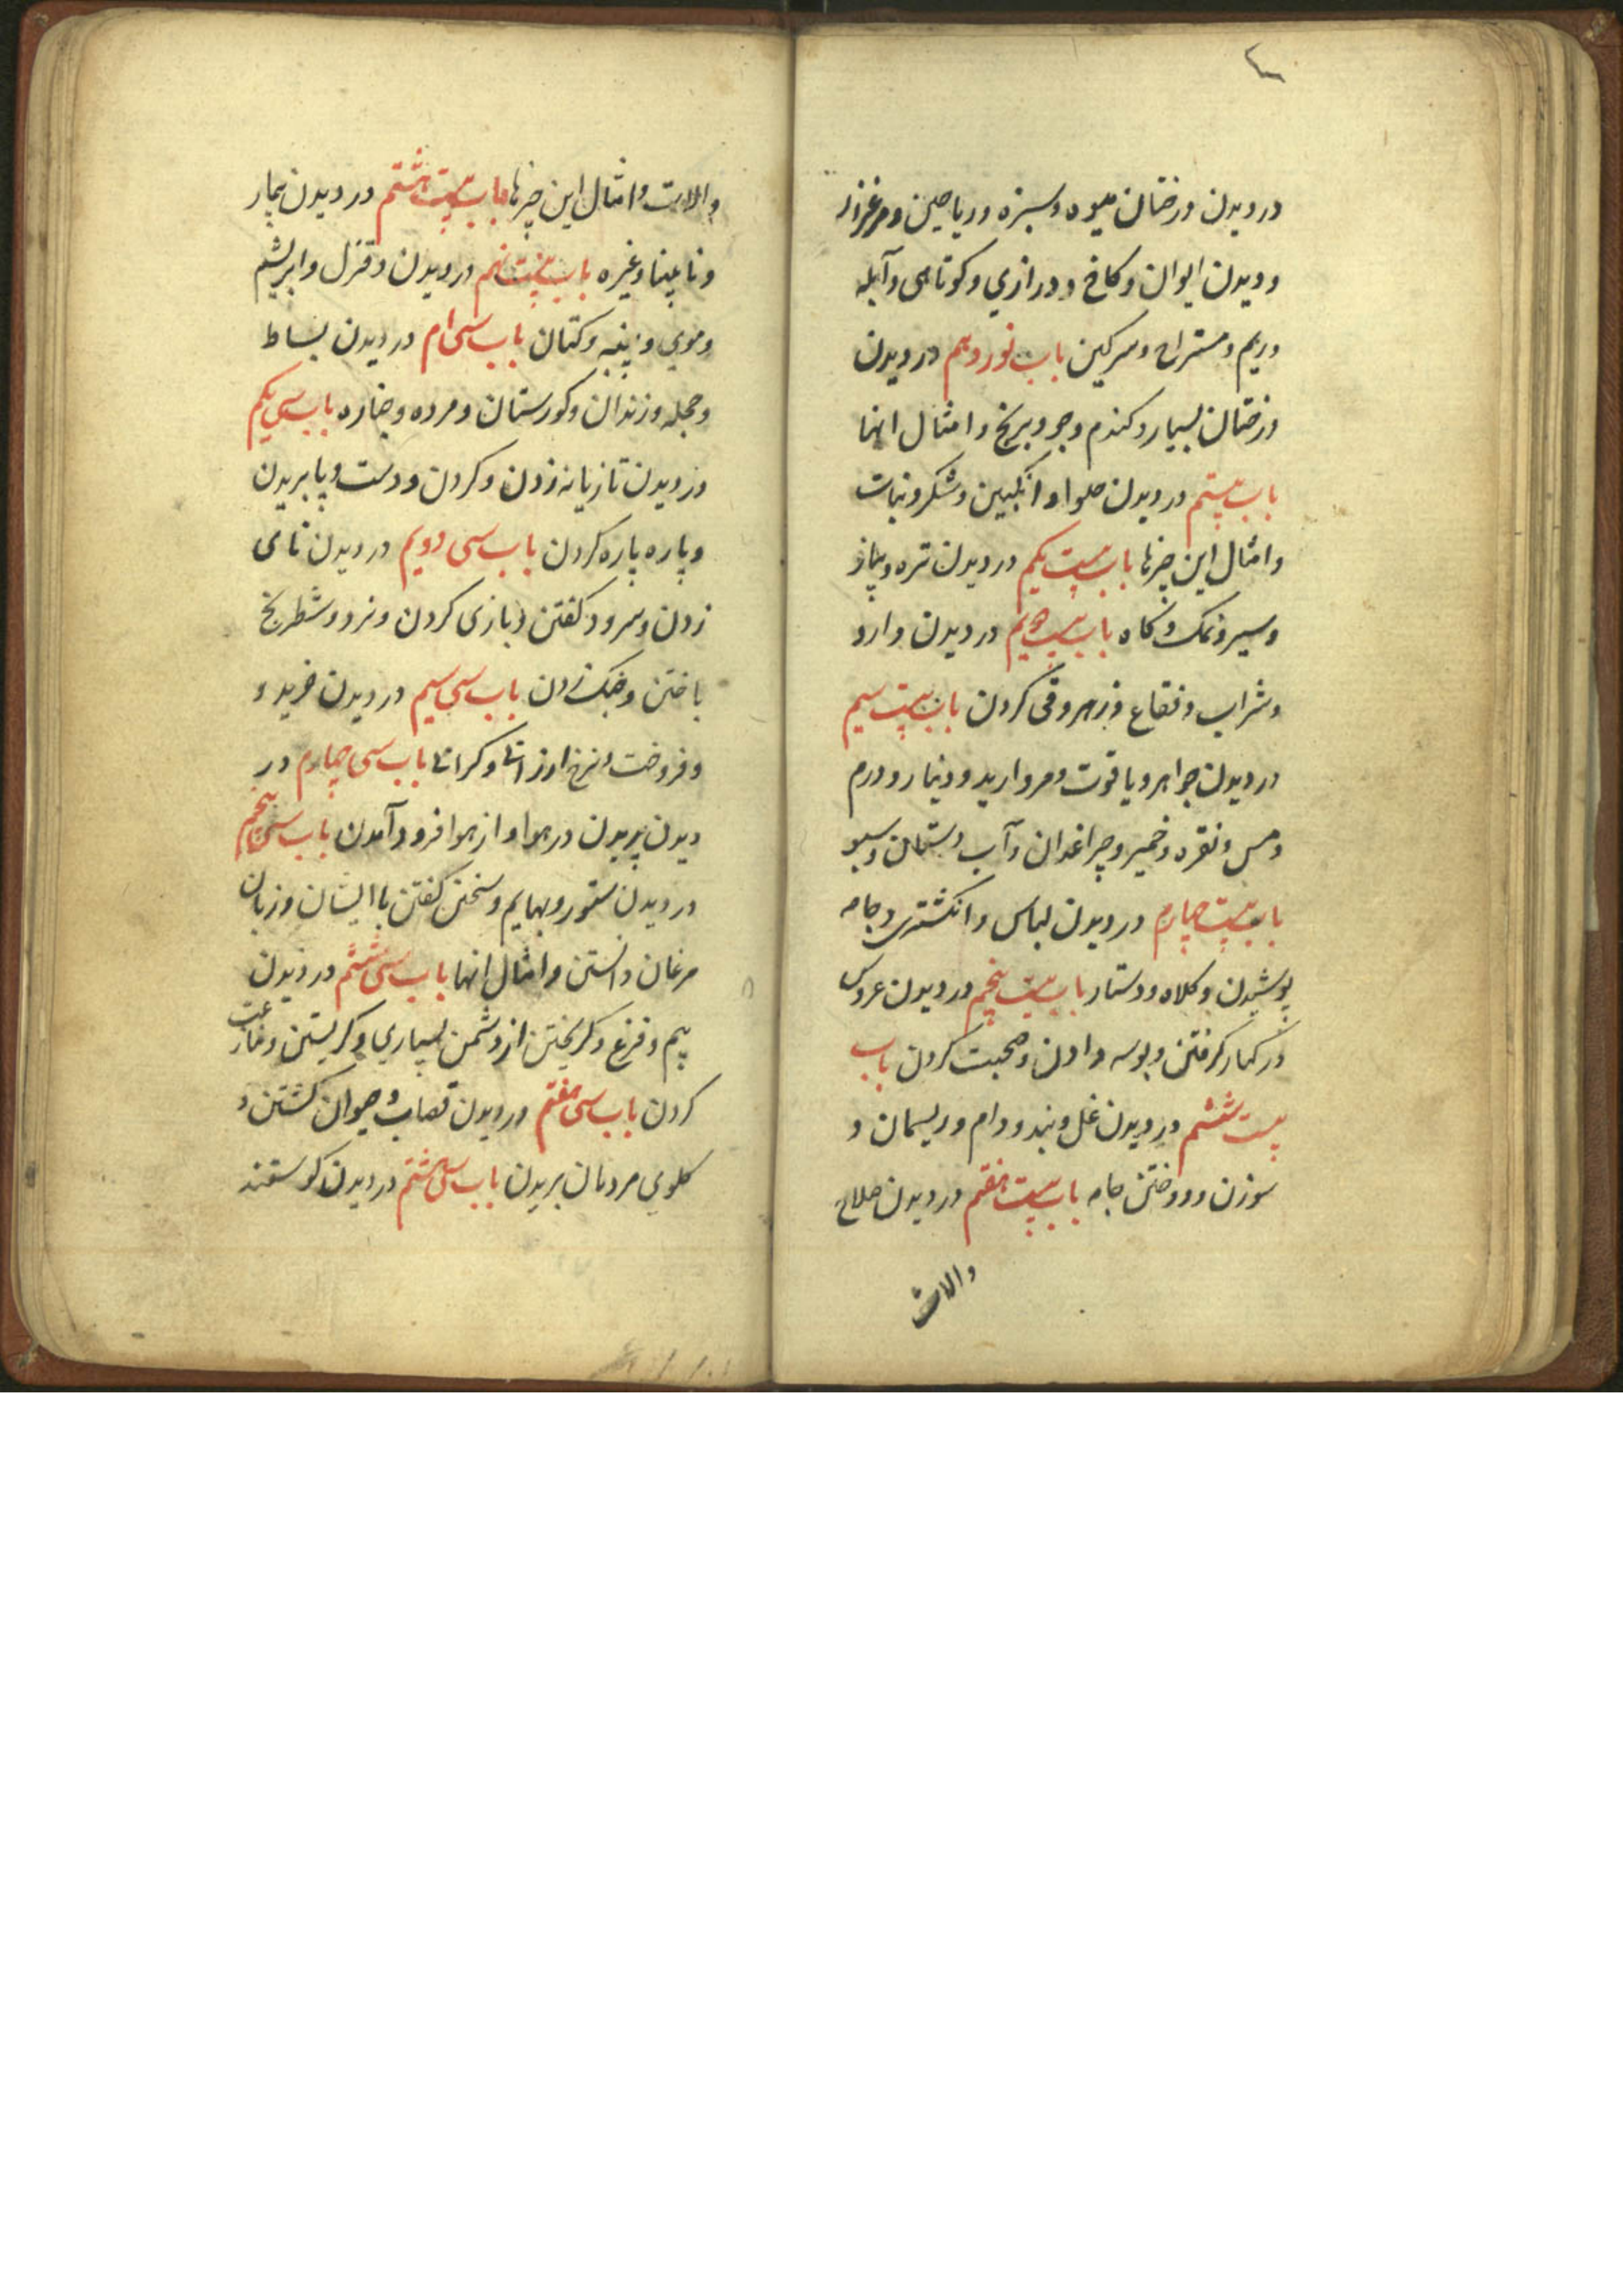 در دیدن درختان میوه و سبزه و ریاحین و مرغزار
و دیدن ایوان و کاخ و درازي و کوتاهی و آبله
وریم و مستراح و سرکین باب نوزدهم در دیدن
درختان بسیار و کندم و جو و برنج و امثال انها
باب بیستم در دیدن حلوا و انکبین و شکر و نبات
و امثال این چیزها باب بیست یکم در دیدن تره و پیاز
و سیر و نمک و کاه باب بیست دویم در دیدن دارو
و شراب و فقاع و زهر و قی کردن باب بیست سیم
در دیدن جواهر و یاقوت و مروارید و دینار و درم
و مس و نقره و خمیر و چراغدان و آب دستدان و سبو
باب بیست چهارم در دیدن لباس و انکشتری و جامه
پوشیدن و کلاه و دستار باب بیست پنجم در دیدن عروس
در کنار کرفتن و بوسه دادن و صحبت کردن باب
بیست ششم در دیدن غل و بند و دام و ریسمان و
سوزن و دوختن جامه باب بیست هفتم در دیدن صلاح
والات
والات و امثال این چیزها باب بیست هشتم در دیدن بیمار
و نابینا و غیره باب بیست نهم در دیدن و قزل و ابریشم
و موي و پنبه و کتان باب سی ام در دیدن بساط
و حجله و زندان و کورستان و مرده و جنازه باب سی یکم
در دیدن تازیانه زدن و کردن و دست و پا بریدن
و پاره پاره کردن باب سی دویم در دیدن نای
زدن و سرود کفتن و بازی کردن و نرد و شطرنج
باختن و چنک زدن باب سی سیم در دیدن خرید و
و فروخت و نرخ ارزانی و کرانی باب سی چهارم در
دیدن پریدن در هوا و از هوا فرود آمدن باب سی پنجم
در دیدن ستور و بهایم و سخن کفتن با ایشان و زبان
مرغان دانستن و امثال انها باب سی ششم در دیدن
بیم و فزع و کریختن از دشمن بسیاري و کریستن و غارت
کردن باب سی هفتم در دیدن قصاب و حیوان کشتن و
کلوي مردمان بریدن باب سی هشتم در دیدن کوسفند